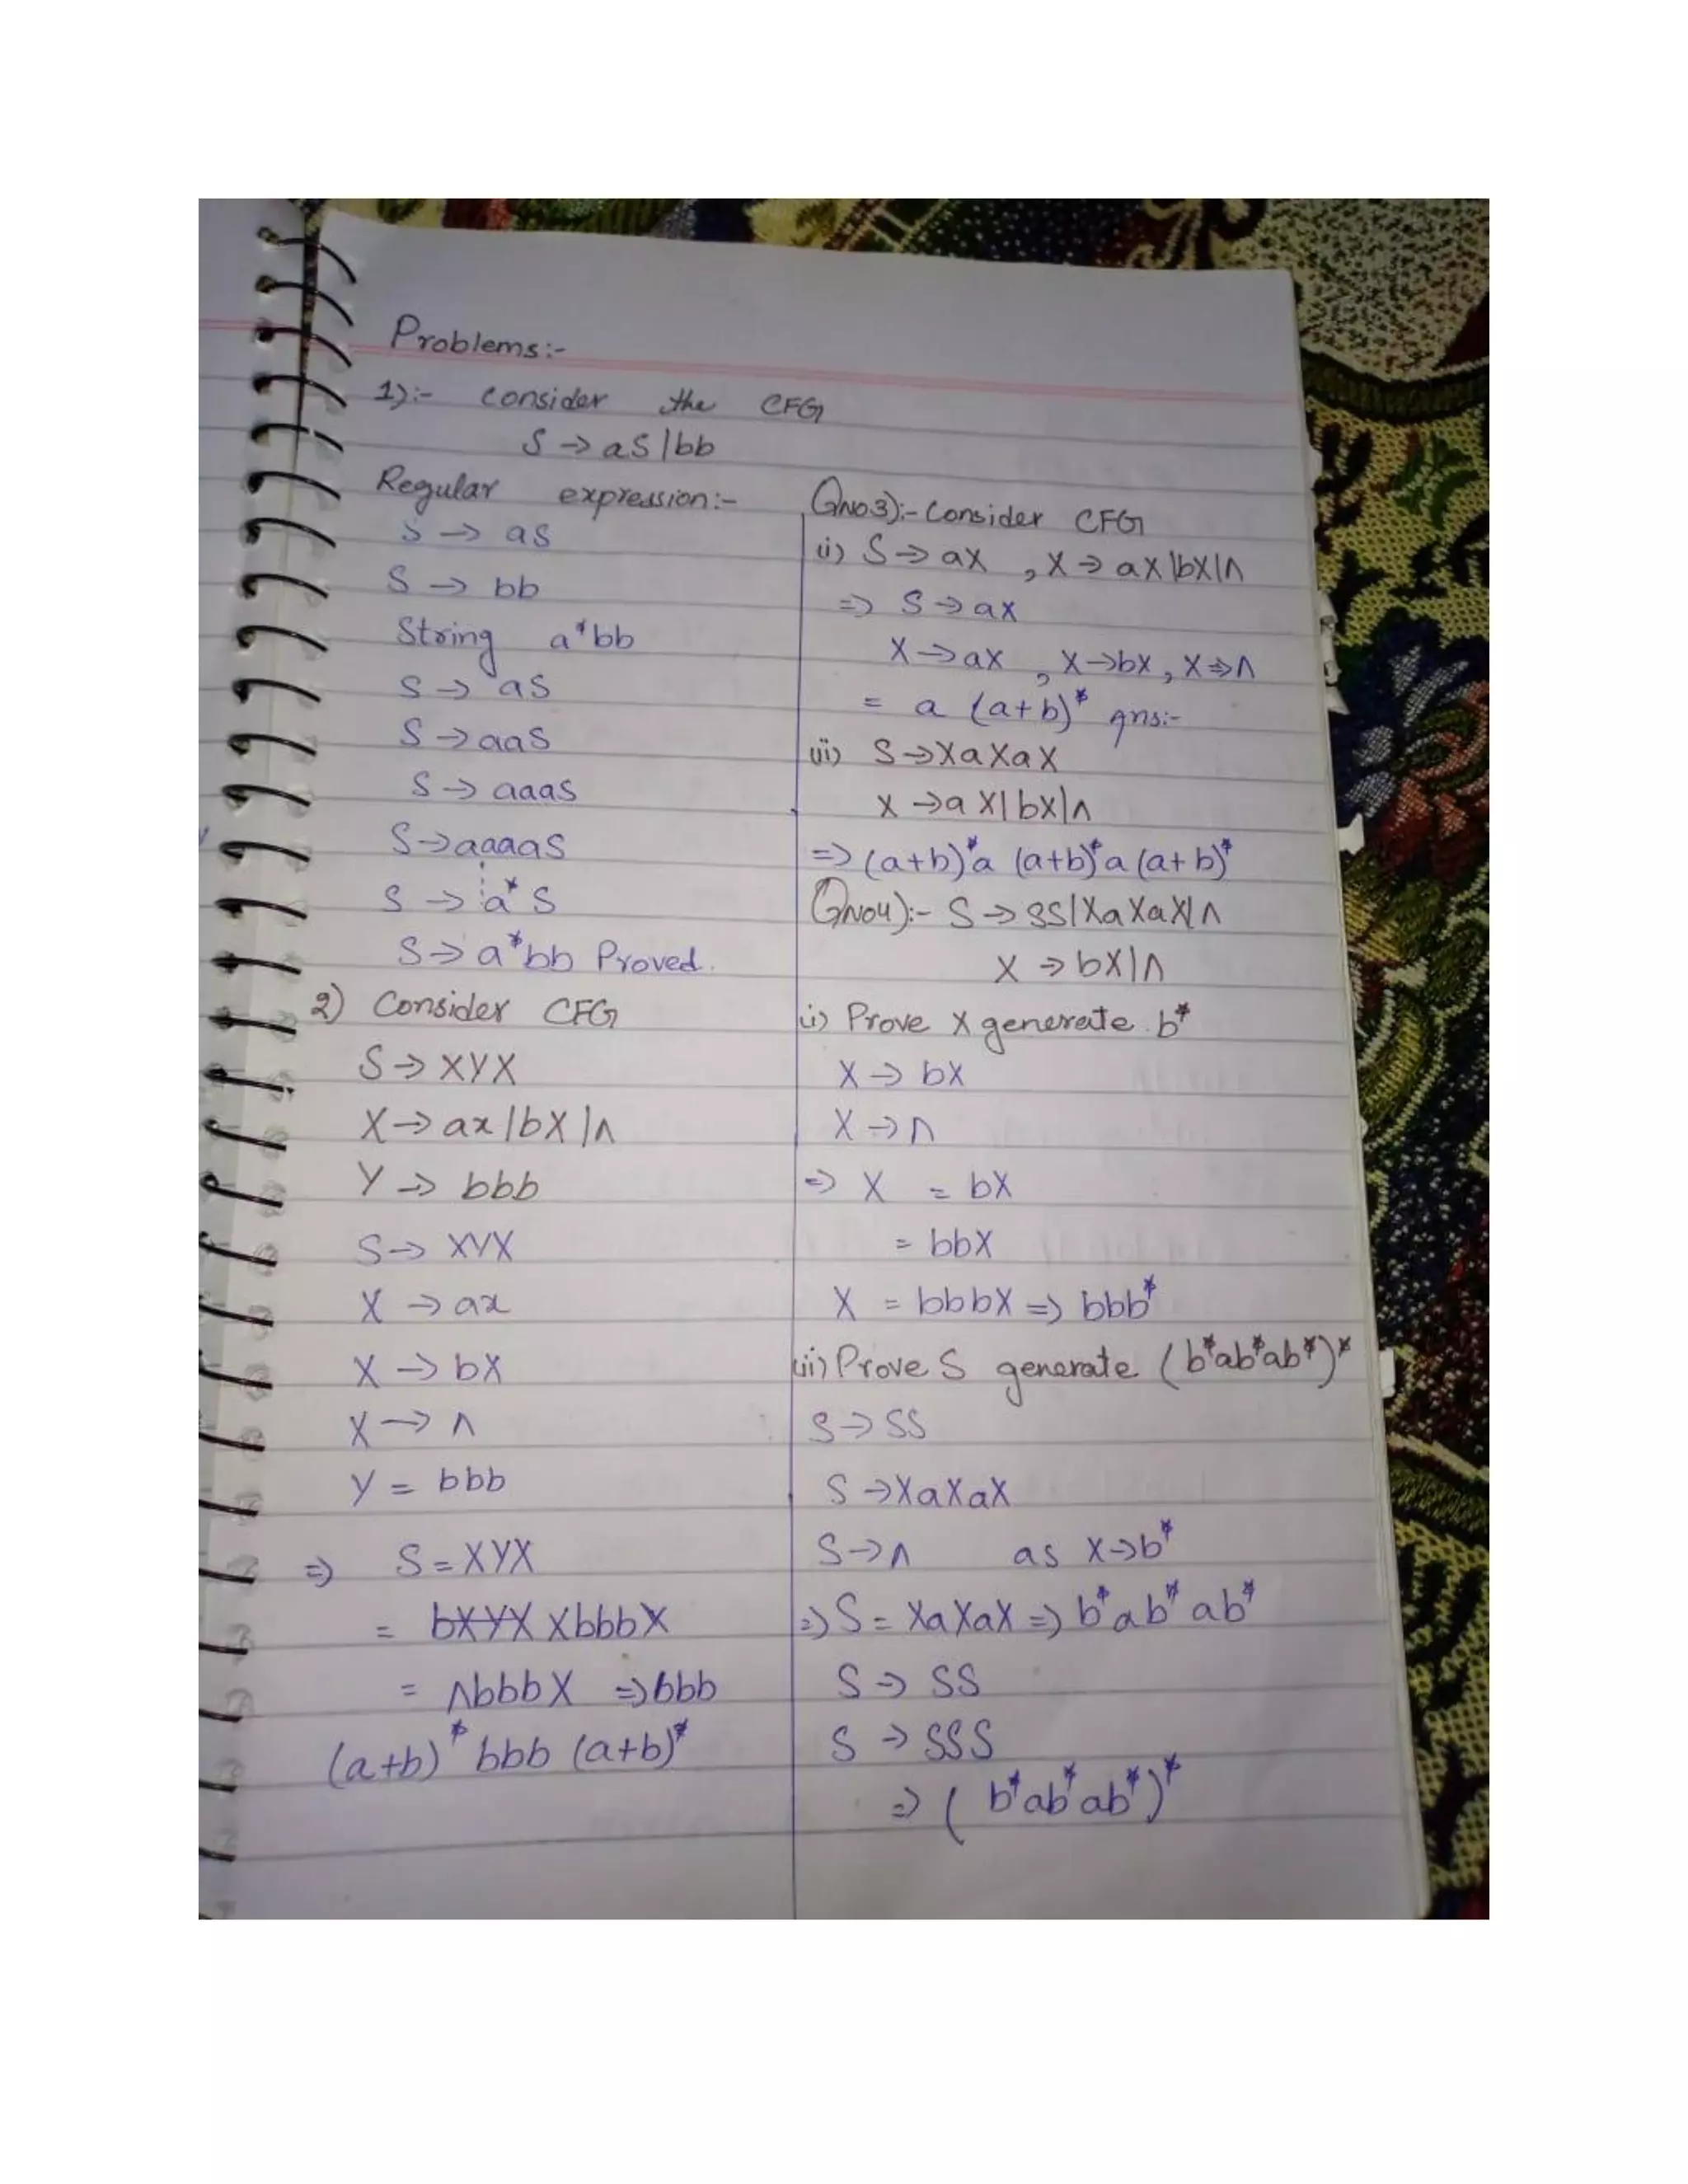 Problems:-
1):- consider the CFG
S → aS | bb
Regular expression:-
S → aS
S → bb
String a*bb
S → aS
S → aaS
S → aaaS
S → aaaaS
S → a* S
S → a*bb Proved.
2) Consider CFG
S → XYX
X → ax | bX | ʌ
Y → bbb
S → XYX
X → ax
X → bX
X → ʌ
Y = bbb
⇒ S = XYX
= bXYX XbbbX
= ʌbbbX ⇒ bbb
(a+b)* bbb (a+b)*
QNo3):- Consider CFG
(i) S → aX , X → aX | bX | ʌ
⇒ S → aX
X → aX , X → bX , X → ʌ
= a (a+b)* ans:-
(ii) S → XaXaX
X → aX | bX | ʌ
⇒ (a+b)*a (a+b)*a (a+b)*
QNo4):- S → SS | XaXaX | ʌ
X → bX | ʌ
(i) Prove X generate b*
X → bX
X → ʌ
⇒ X = bX
= bbX
X = bbbX ⇒ bbb*
(ii) Prove S generate (b*ab*ab*)*
S → SS
S → XaXaX
S → ʌ as X → b*
⇒ S = XaXaX ⇒ b*ab*ab*
S → SS
S → SSS
⇒ (b*ab*ab*)*